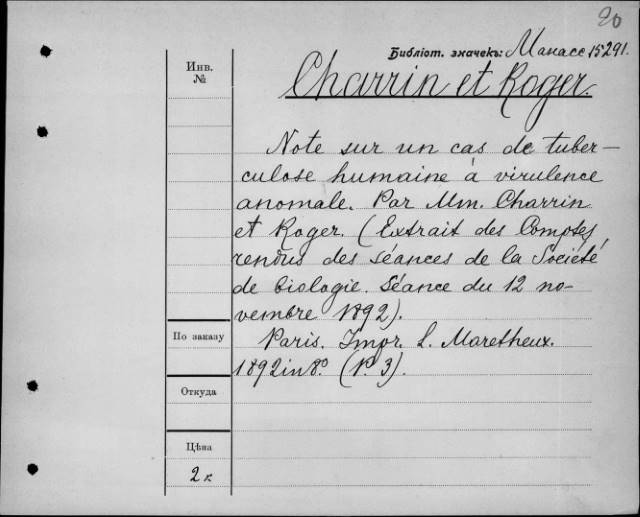 20
Библіот. значекъ: Манасс 15291.
Инв.
№
Charrin et Roger.
Note sur un cas de tuber-
culose humaine à virulence
anomale. Par Mm. Charrin
et Roger. (Extrait des Comptes
rendus des séances de la Société
de biologie. Séance du 12 no-
vembre 1892).
Paris. Impr. L. Maretheux.
1892 in 8º. (P. 3).
По заказу
Откуда
Цѣна
2 к